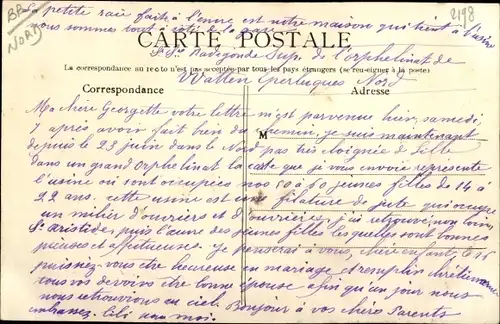 BPn
NORD
2198
petite raie faite à l'encre est notre maison qui tient à l'usine
nous sommes tout à côté de la
CARTE POSTALE
Sr Ste Radegonde Sup. de l'orphelinat de
La correspondance au recto n'est pas acceptée par tous les pays étrangers (se renseigner à la poste)
Watten Eperlecques Nord
Correspondance
Adresse
Ma chère Georgette votre lettre m'est parvenue hier, samedi,
7 après avoir fait bien du chemin, je suis maintenant
M
depuis le 23 juin dans le Nord pas très éloignée de Lille
dans un grand Orphelinat la carte que je vous envoie représente
l'usine où sont occupées nos 50 à 60 jeunes filles de 14 à
22 ans. cette usine est une filature de jute qui occupe
un millier d'ouvriers et d'ouvrières, j'ai retrouvé non loin
St aristide, puis l'œuvre des jeunes filles lesquelles sont bonnes
pieuses et affectueuses. Je penserai à vous, chère enfant le 16
puissiez-vous être heureuse en mariage et remplir chrétiennement
tous vos devoirs être bonne épouse afin qu'un jour nous
nous retrouvions au ciel. Bonjour à vos chers Parents
embrassez moi.